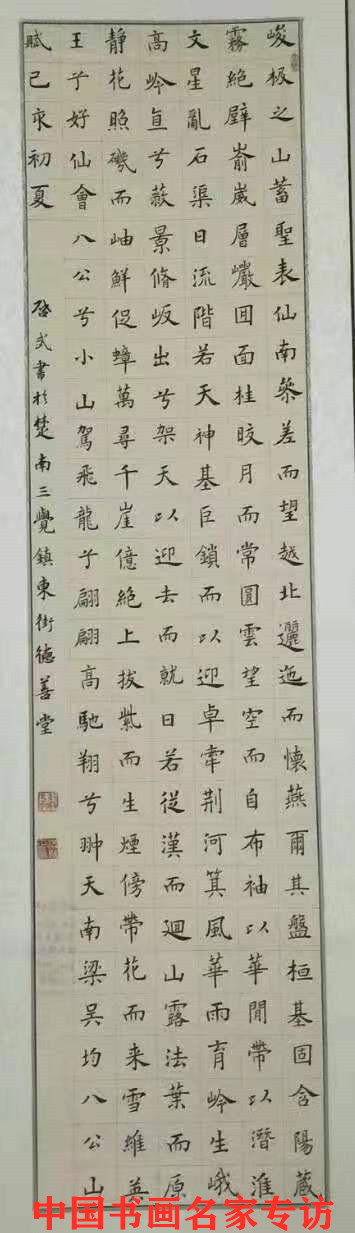 峻极之山蓄聖表仙南叅差而望越北邐迤而懷燕爾其盤桓基固含陽藏
霧絕壁嵛崴層巘囬面桂晈月而常圓雲望空而自布袖以華閒帶以潛淮
文星亂石渠日流階若天神基巨鎖而以迎卓䍐荆河箕風華雨育岭生峨
高岭亘兮蔽景脩岅出兮架天以迎去而就日若從漢而迴山露法葉而原
靜花照磯而岫鮮促嶂萬尋千崖億絕上拔紫而生煙傍帶花而来雪維英
王兮好仙會八公兮小山駕飛龍兮翩翩高馳翔兮翀天南梁吴均八公山
賦已亥初夏
啓武書於楚南三覺鎮東街德善堂
中国书画名家专访